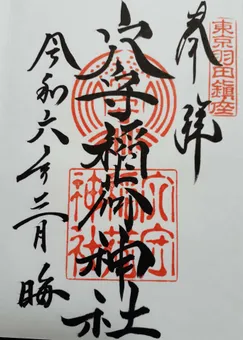 東京羽田鎮座
奉拝
穴守稲荷神社
穴守稲荷神社
令和六年二月晦